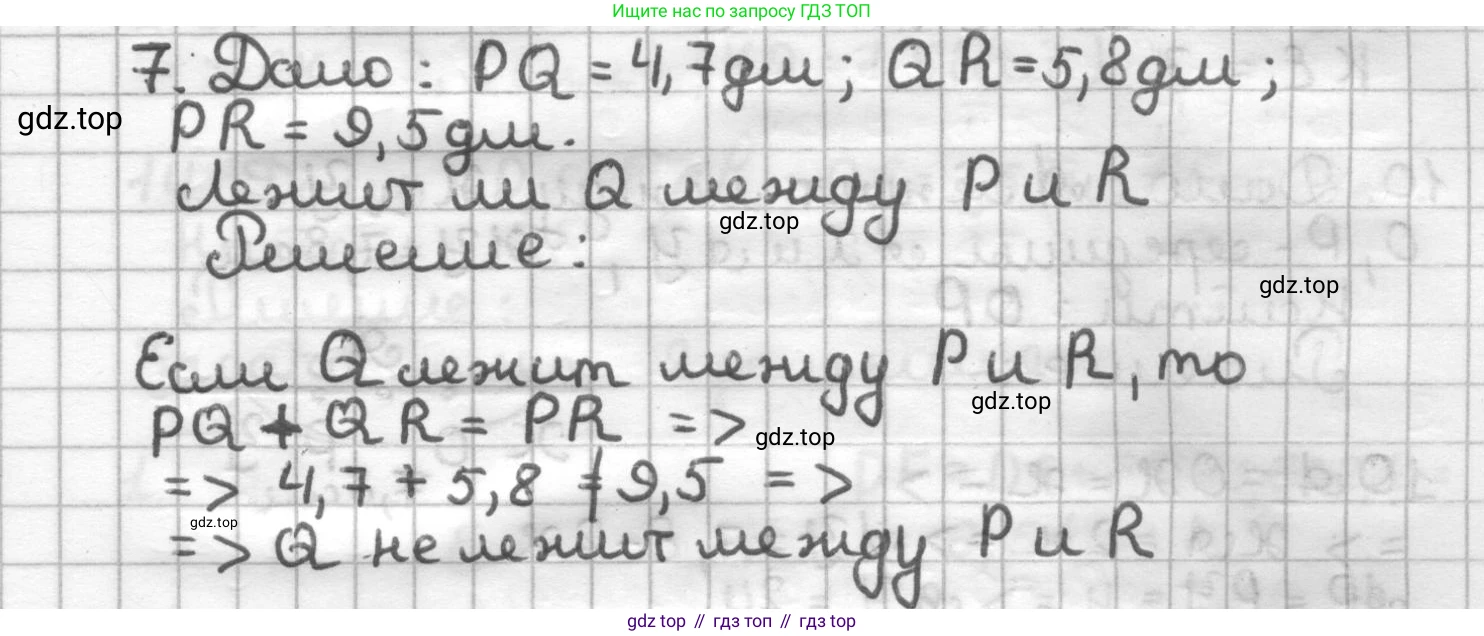 Ищите нас по запросу ГДЗ ТОП
7. Дано: PQ = 4,7 дм; QR = 5,8 дм;
gdz.top
PR = 9,5 дм.
Лежит ли Q между P и R
gdz.top
Решение:
gdz.top
Если Q лежит между P и R, то
gdz.top
PQ + QR = PR =>
gdz.top
=> 4,7 + 5,8 ≠ 9,5 =>
gdz.top
=> Q не лежит между P и R
gdz.top // гдз топ // гдз top